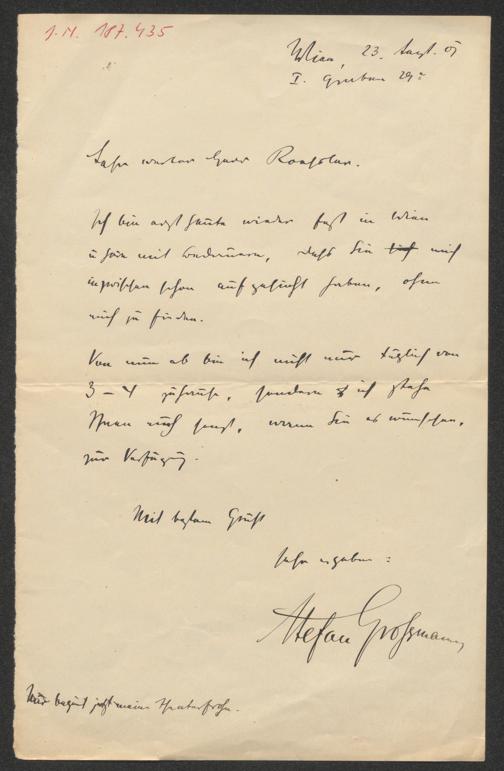 J. N. 187.435
Wien, 23. Sept. 07
I. Graben 29
Sehr werter Herr Roessler.
Ich bin erst heute wieder fest in Wien
u höre mit Bedauern, dass Sie mich
inzwischen schon aufgesucht haben, ohne
mich zu finden.
Von nun ab bin ich nicht nur täglich von
3 – 4 zuhause, sondern ich stehe
Ihnen auch sonst, wenn Sie es wünschen,
zur Verfügung.
Mit bestem Gruß
sehr ergeben:
Stefan Grossmann
Nur beginnt jetzt meine